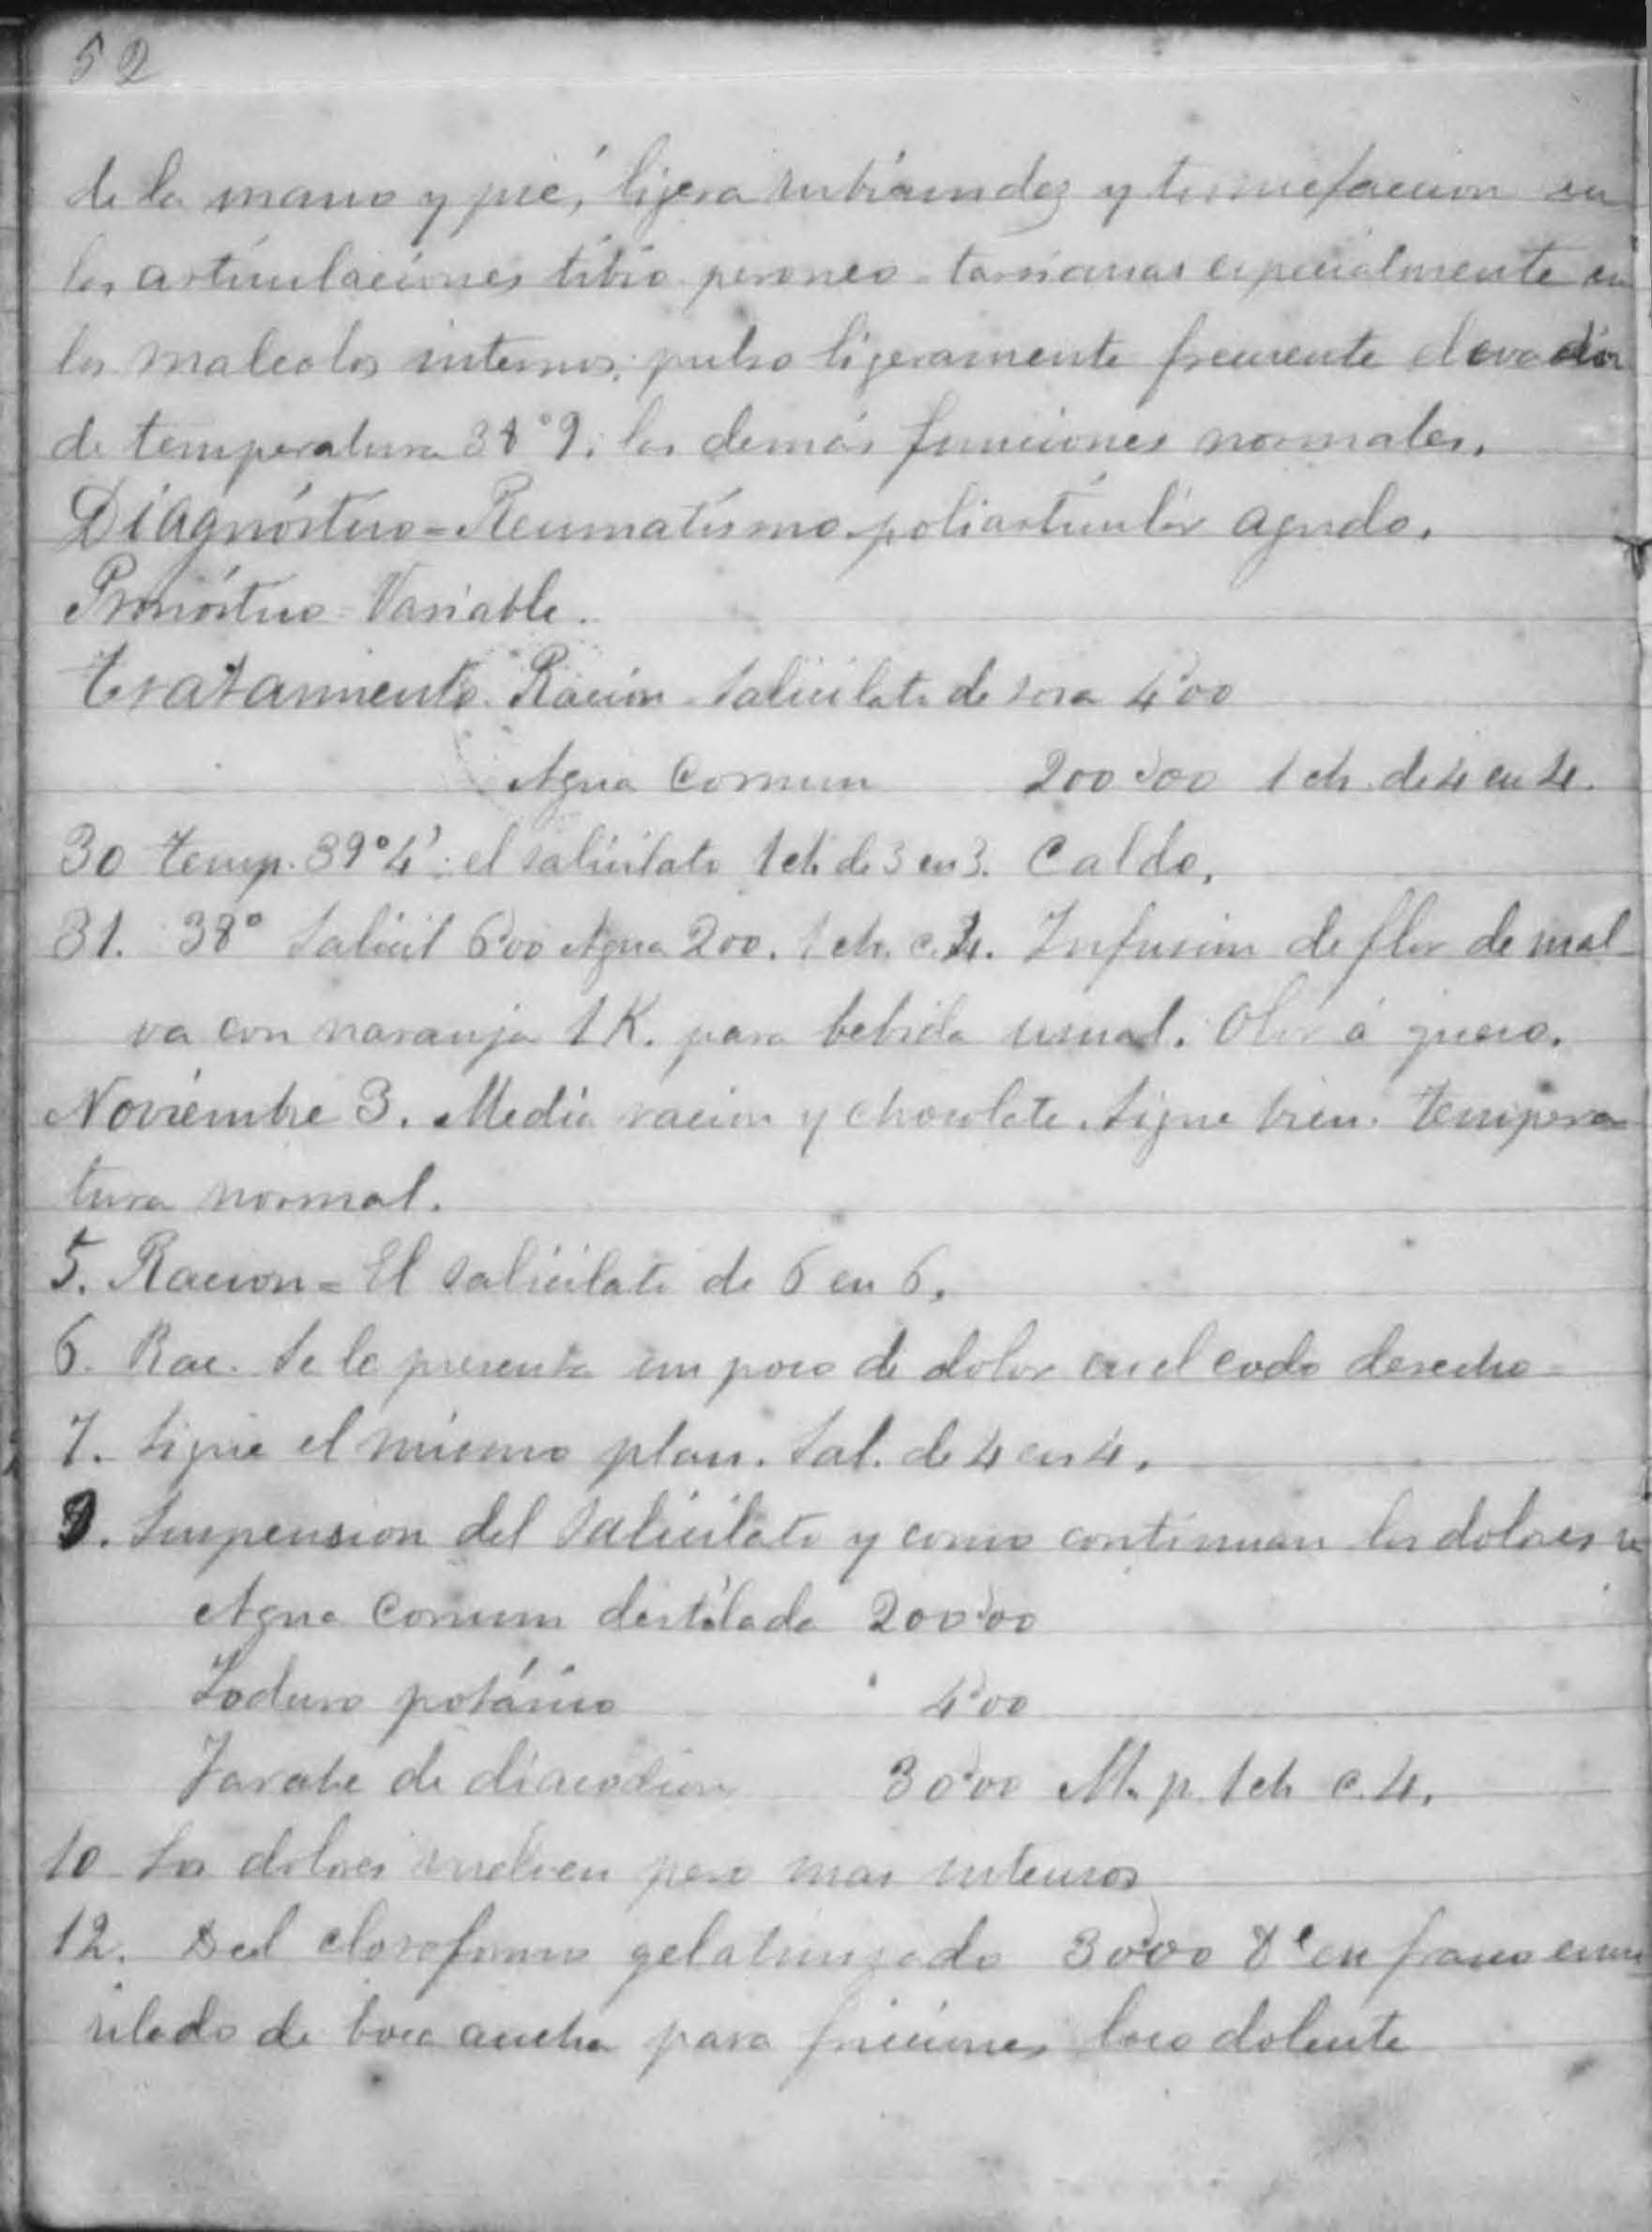 52
de la mano y pié, ligera rubicundez y tumefaccion en
las articulaciones tibio peroneo-tarsianas especialmente en
los maleolos internos; pulso ligeramente frecuente elevacion
de temperatura 38°9. las demás funciones normales.
Diagnóstico = Reumatismo poliarticulár agudo.
Pronóstico - Variable.
Tratamiento. Racion - Salicilato de sosa 4'00
Agua comun 200'00 1 ch. de 4 en 4.
30 Temp. 39°4': el salicilato 1 ch. de 3 en 3. Caldo.
31. 38° Salicil 6'00 Agua 200. 1 ch. c. 4. Infusion de flor de mal-
va con naranja 1 K. para bebida usual. Olor á queso.
Noviembre 3. Media racion y chocolate. Sigue bien. Tempera
tura normal.
5. Racion = El salicilato de 6 en 6.
6. Rac. Se le presenta un poco de dolor en el codo derecho -
7. Sigue el mismo plan. Sal. de 4 en 4.
9. Suspension del Salicilato y como continuan los dolores
Agua comun destilada 200'00
Ioduro potásico 4'00
Jarabe de diacodion 30'00 M. p. 1 ch c. 4.
10 Los dolores vuelven pero mas intensos
12. Del cloroformo gelatinizado 30'00 en frasco esme
rilado de boca ancha para fricciones loco dolente